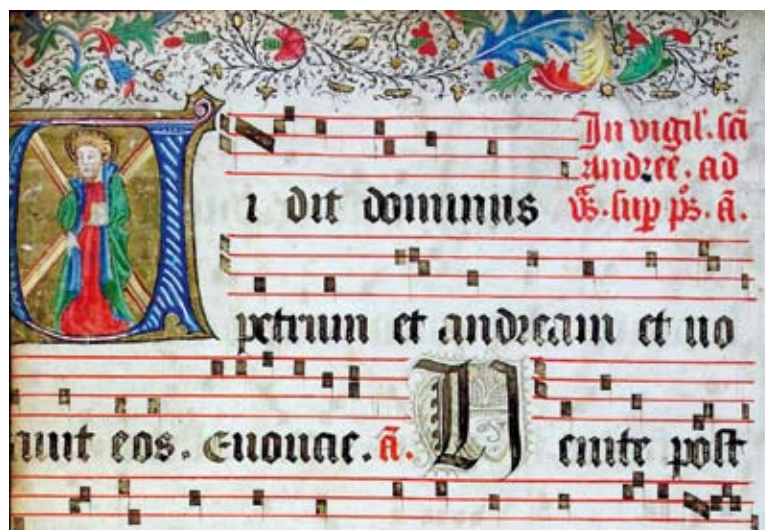 In vigil'. scī
andree. ad
v̊s. sup̱ p̊s. ā.
Vidit dominus
petrum et andream et uo
uit eos. euouae. ā. Uenite post